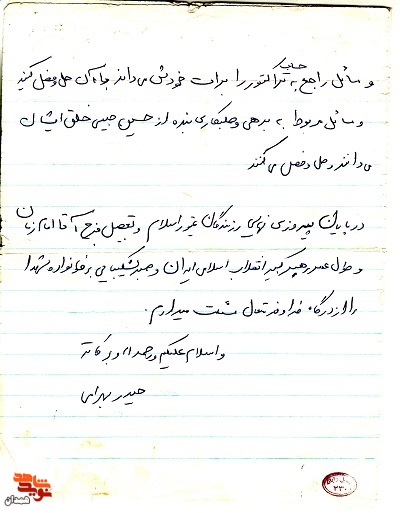 حساب
و مسائل راجع به تراکتور را برات خودش می‌داند با آن حل و فصل کنید
و مسائل مربوط به بدهی و طلبکاری بنده را از حسین حبیبی خلق ایشان
می‌دانند و حل و فصل می‌کنند
در پایان پیروزی نهایی رزمندگان غیور اسلام و تعجیل فرج آقا امام زمان
و طول عمر رهبر کبیر انقلاب اسلامی ایران و صبر شکیبایی بر خانواده شهدا
را از درگاه خداوند متعال مسئلت میدارم.
والسلام علیکم و رحمه الله و برکاته
حیدر بهرامی
نوید شاهد
همدان
۲۳۰